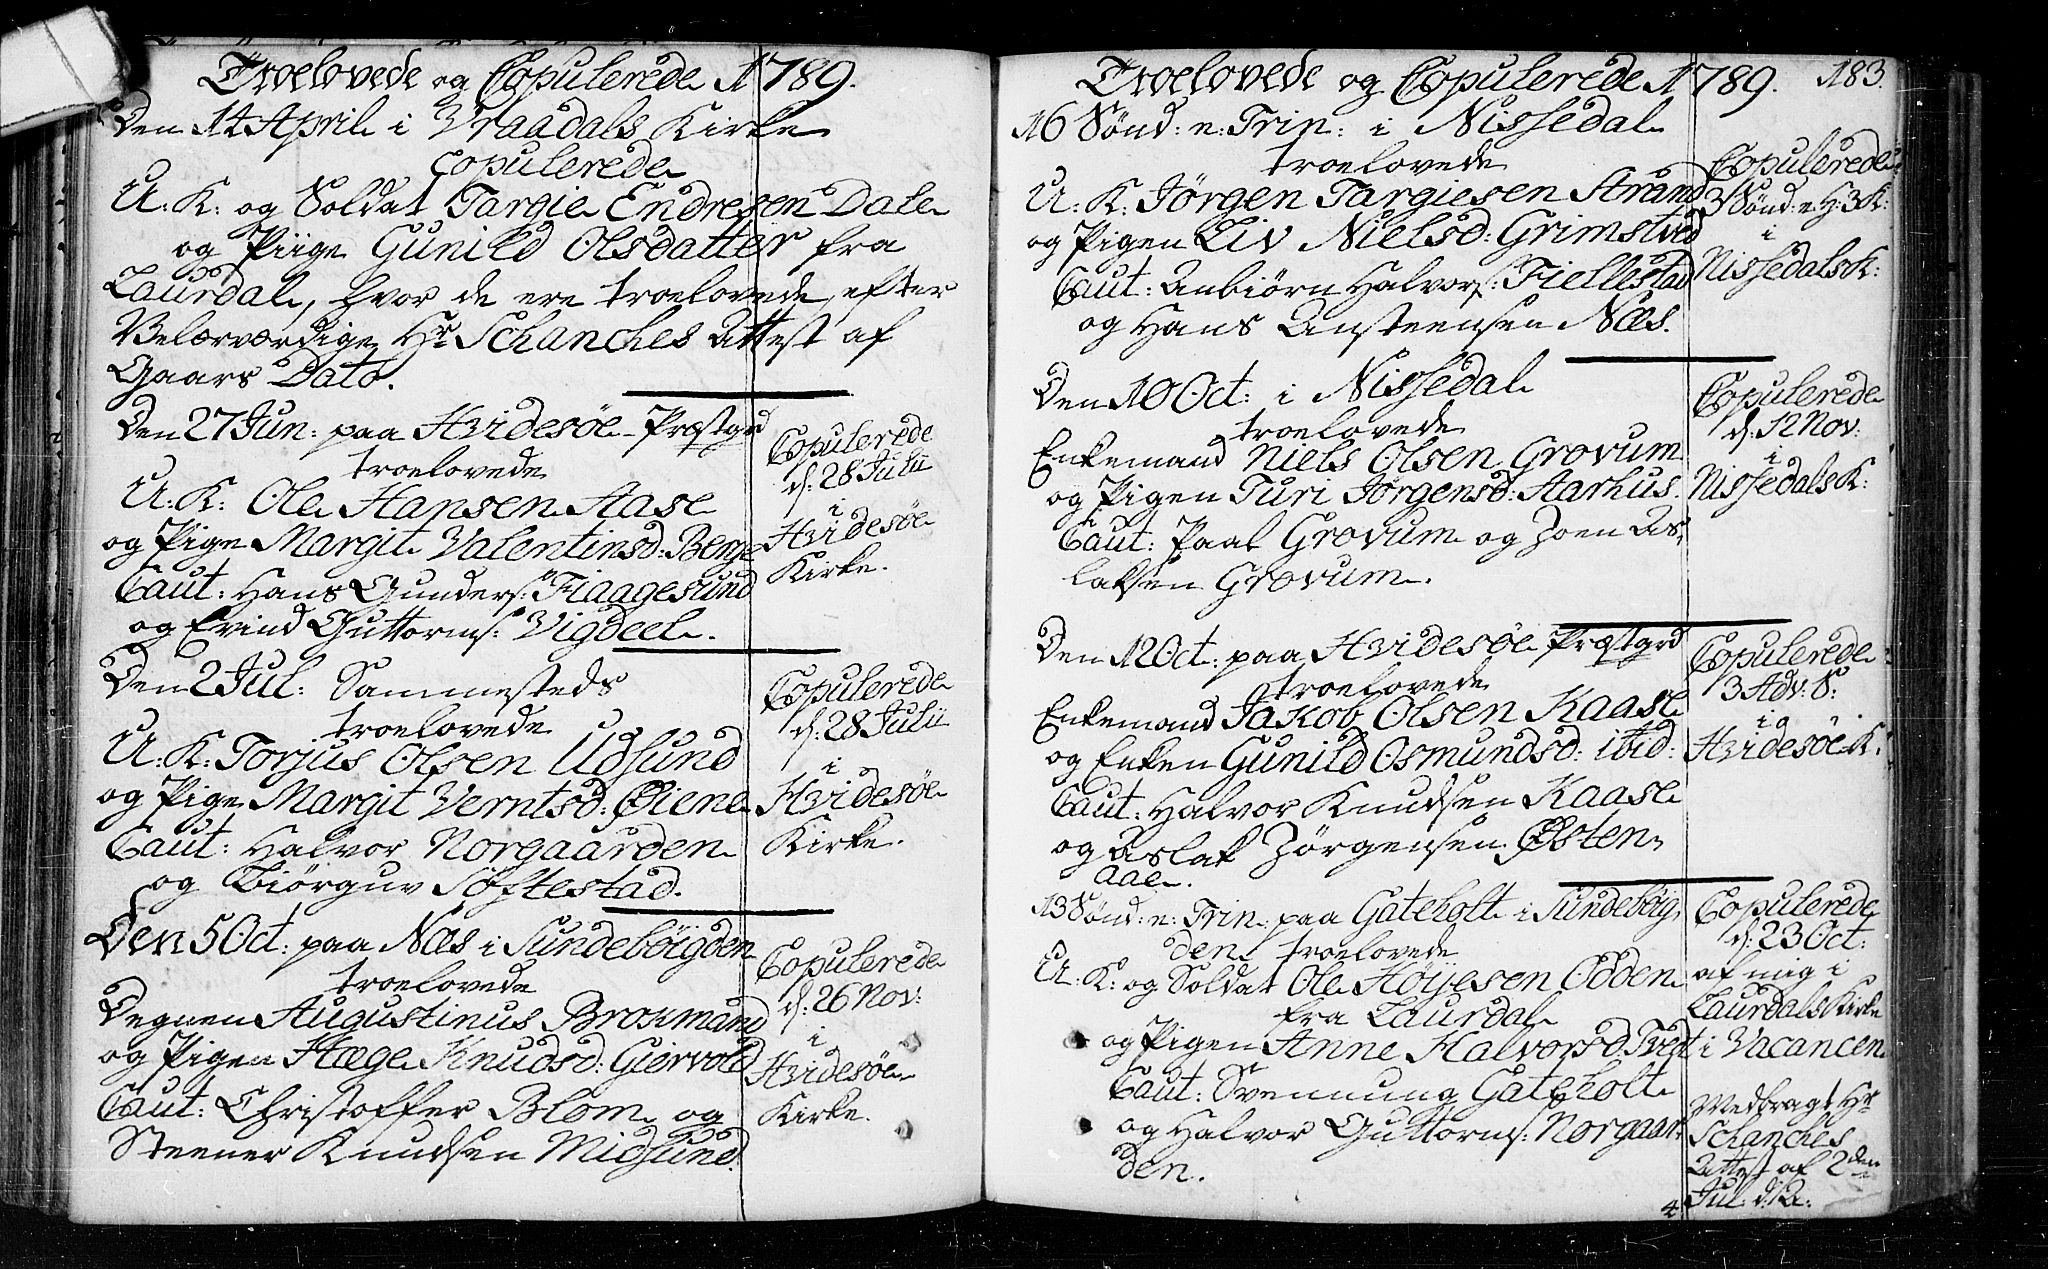 Troelovede og Copulerede 1789.
Den 14 April i Vraadals Kirke
copulerede
U: K: og Soldat Targie Endresen Dale
og Piige Gunild Olsdatter fra
Laurdal, hvor de ere troelovede, efter
Velærværdige Hr Schanches Attest af
Gaars Dato.
Den 27 Jun: paa Hvidesøe Præstgrd
troelovede
U: K: Ole Hansen Aase
og Pige Margit Valentinsd: Berge
Caut: Hans Gunders: Fiaagesund
og Evind Guttorms: Vigdeel.
Copulerede
d: 28 Julii
i
Hvidesøe
Kirke.
Den 2 Jul: Sammesteds
troelovede
U: K: Torjus Olsen Udsund
og Pige Margit Verntsd: Øiene
Caut: Halvor Norgaarden
og Biørguv Søftestad.
Copulerede
d: 28 Julii
i
Hvidesøe
Kirke.
Den 5 Oct: paa Næs i Sundebøigden
troelovede
Degnen Augustinus Broxmand
og Pigen Hæge Knudsd: Gjervold
Caut: Christoffer Blom og
Steener Knudsen Midsund.
Copulerede
d: 26 Nov:
i
Hvidesøe
Kirke.
Troelovede og Copulerede 1789. 183.
16 Sønd: e: Trin: i Nissedal
troelovede
U: K: Jørgen Targiesen Strand
og Pigen Liv Nielsd: Grimstved
Caut: Anbiørn Halvors: Fiellestad
og Hans Ansteensen Næs.
Copulerede
3 Sønd: e: H: 3 K:
i
Nissedals K:
Den 10 Oct: i Nissedal
troelovede
Enkemand Niels Olsen Grovum
og Pigen Turi Jørgensd: Aarhus.
Caut: Paal Grovum og Zoen As,
laksen Grovum.
Copulerede
d: 12 Nov:
i
Nissedals K:
Den 12 Oct: paa Hvidesøe Præstgrd
troelovede
Enkemand Jakob Olsen Kaase
og Enken Gunild Osmundsd: ibid:
Caut: Halvor Knudsen Kaase
og Aslak Zørgensen Østen,
aae.
Copulerede
3 Adv: S:
i
Hvidesøe K:
13 Sønd: e: Trin: paa Gateholt i Sundebøig,
den troelovede
U: K: og Soldat Ole Høijesen Odden
fra Laurdal
og Pigen Anne Halvorsd: Tvedt
Caut: Svennung Gateholt
og Halvor Guttorms: Norgaar,
den.
Copulerede
d: 23 Oct:
af mig i
Laurdals Kirke
i Vacancen
Medbragt Hr
Schanches
Attest af 2den
Jul: d: A: